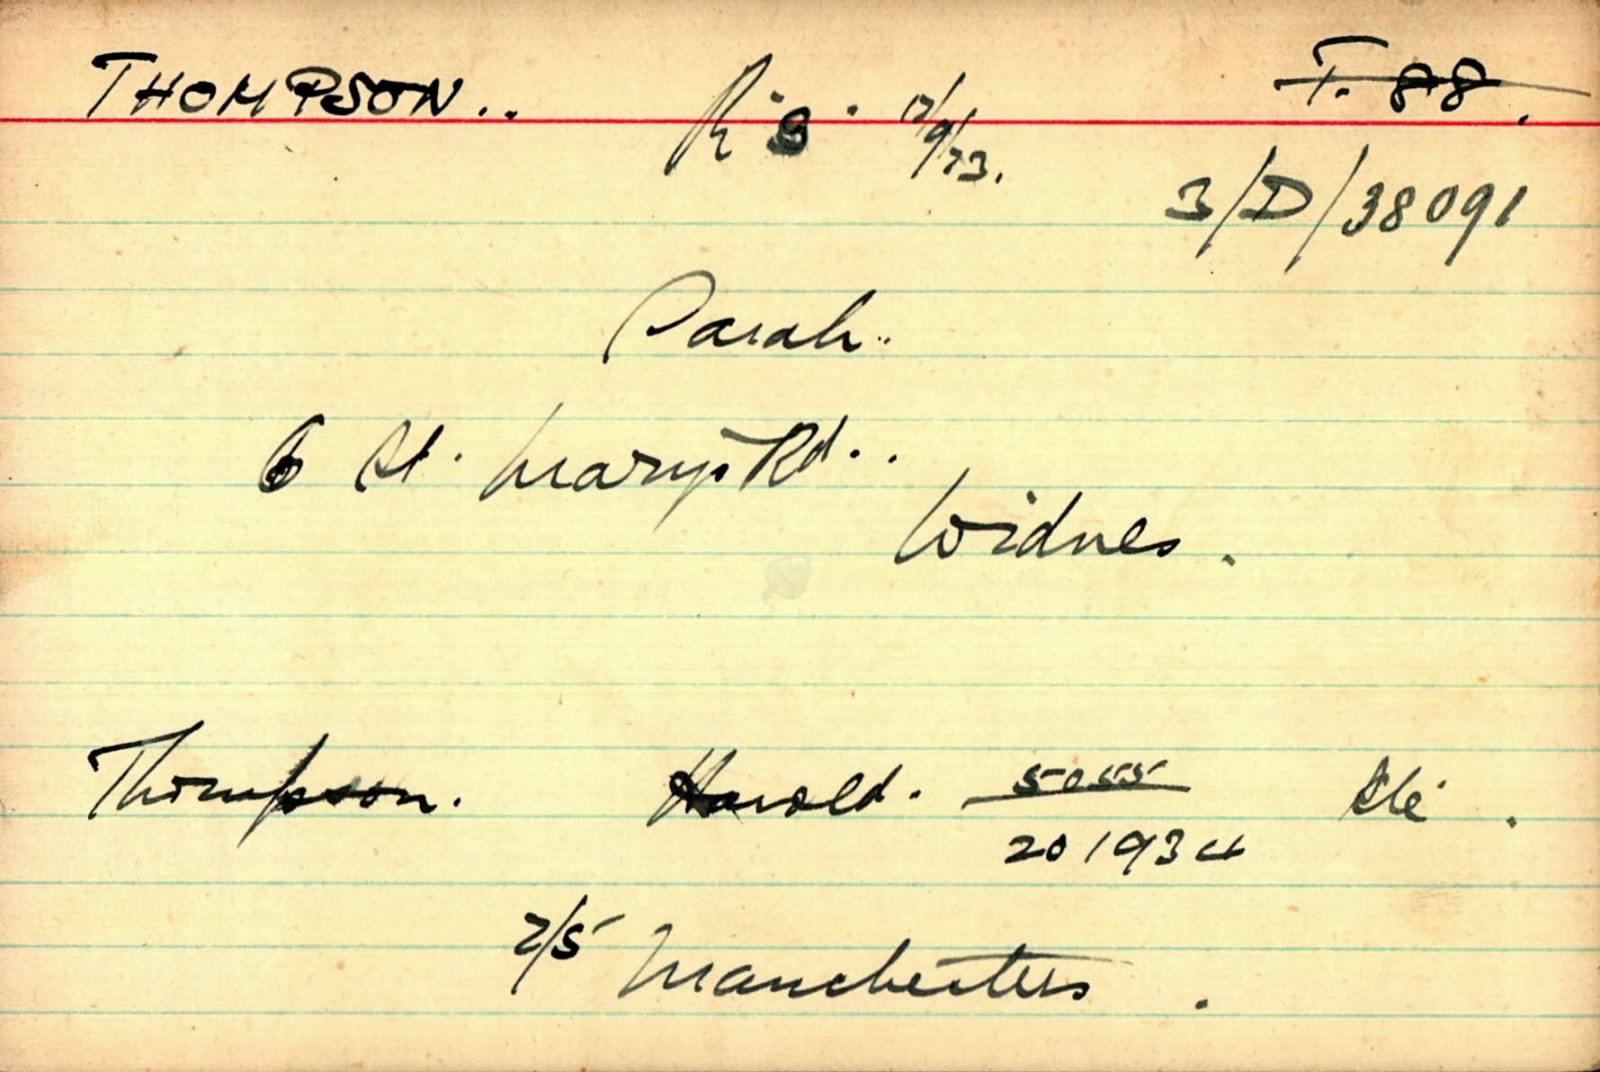 THOMPSON.. R.S. 12/9/73. T. 88.
3/D/38091
Sarah..
6 St. Mary's Rd..
Widnes.
Thompson. Harold. 5055 Pte.
201934
2/5 Manchesters.